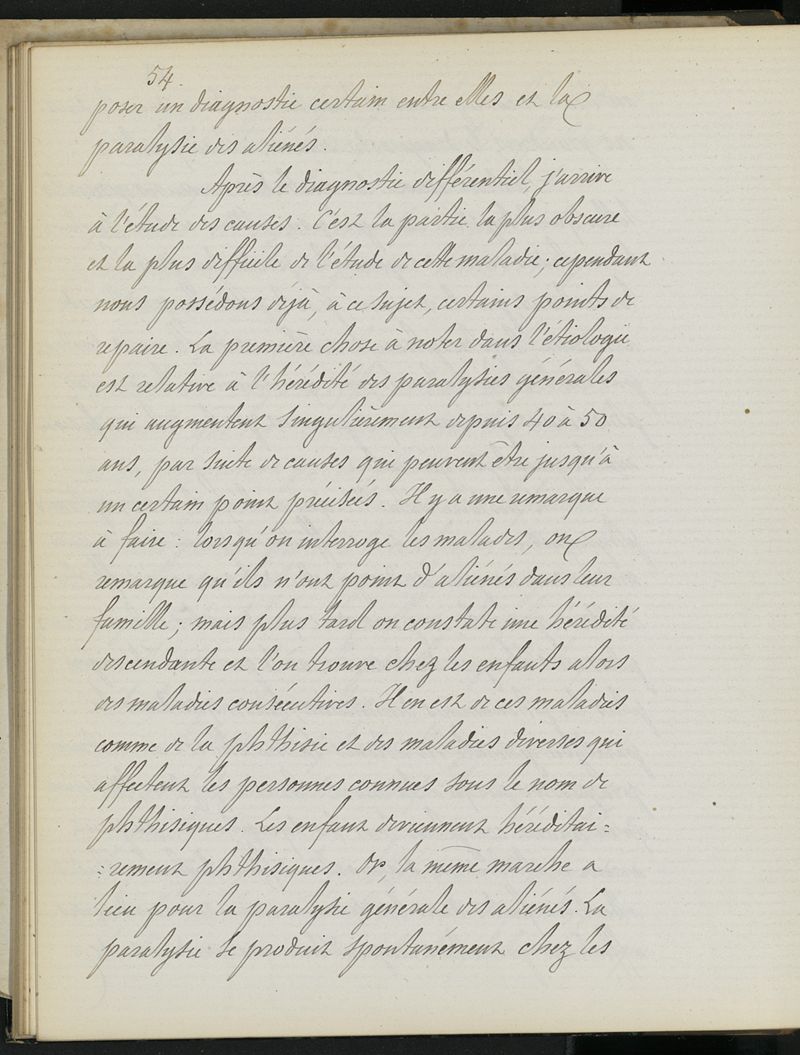 54.
poser un diagnostic certain entre elles et la
paralysie des aliénés.
Après le diagnostic différentiel, j'arrive
à l'étude des causes. C'est la partie la plus obscure
et la plus difficile de l'étude de cette maladie; cependant
nous possédons déjà, à ce sujet, certains points de
repaire. La première chose à noter dans l'étiologie
est relative à l'hérédité des paralysies générales
qui augmentent singulièrement depuis 40 à 50
ans, par suite de causes qui peuvent être jusqu'à
un certain point précisées. Il y a une remarque
à faire: lorsqu'on interroge les malades, on
remarque qu'ils n'ont point d'aliénés dans leur
famille; mais plus tard on constate une hérédité
descendante et l'on trouve chez les enfants alors
des maladies consécutives. Il en est de ces maladies
comme de la phthisie et des maladies diverses qui
affectent les personnes connues sous le nom de
phthisiques. Les enfant deviennent héréditai=
=rement phthisiques. Or, la même marche a
lieu pour la paralysie générale des aliénés. La
paralysie se produit spontanément chez les